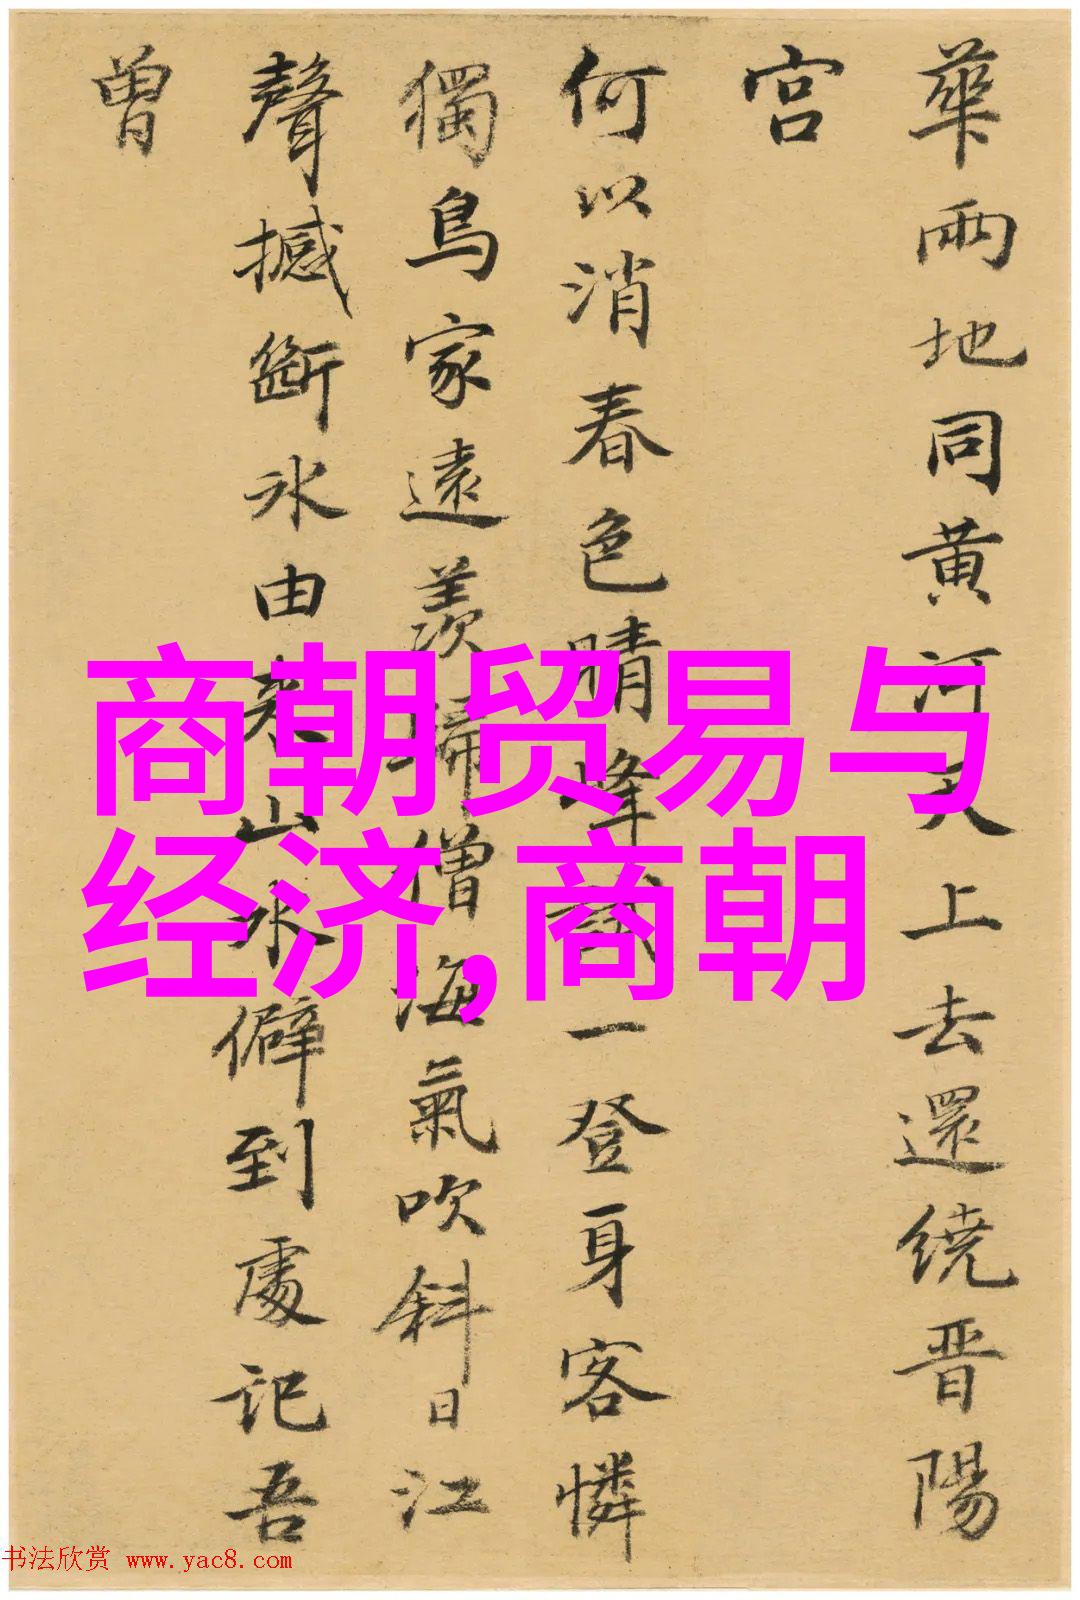 華兩地同黄河天上去還繞晋陽
宫
何以消春色晴峰試一登身客憐
獨鳥家遠羨歸僧海氣吹斜日江
聲撼斷冰由来山水僻到處記吾
曾
商朝贸易与
经济,商朝
书法欣赏 www.yac8.com